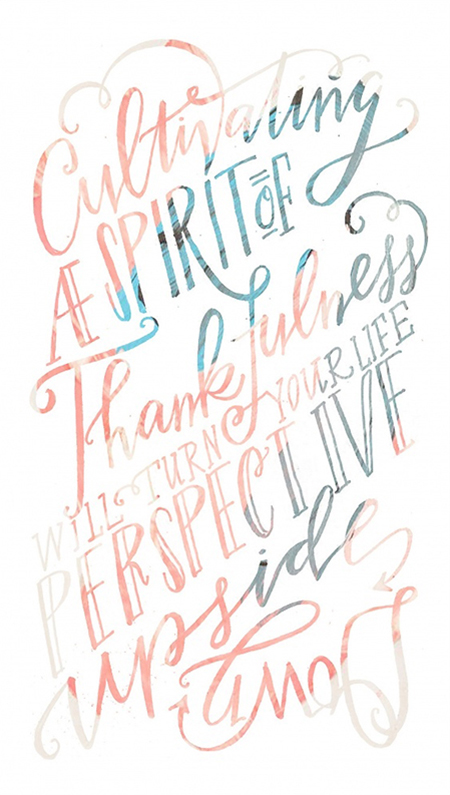 Cultivating
Æ SPIRIT OF
Thankfulness
WILL TURN YOUR LIFE
PERSPECTIVE
upside
Down